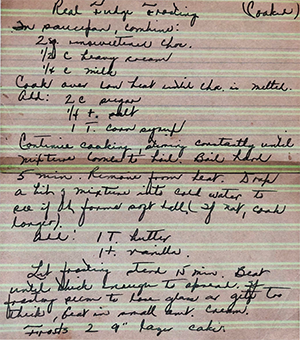 Real Fudge Frosting (Cooked)
In saucepan, combine:
2 sq. unsweetened choc.
1/2 c heavy cream
1/4 c milk
Cook over low heat until cho. is melted.
Add: 2 c sugar
1/4 t. salt
1 T. corn syrup
Continue cooking, stirring constantly until
mixture comes to boil. Boil hard
5 min. Remove from heat. Drop
a bit of mixture into cold water to
see if it forms soft ball, (If not, cook
longer).
Add: 1 T. butter
1 t. vanilla.
Let frosting stand 15 min. Beat
until thick enough to spread. If
frosting seems to lose gloss or gets too
thick, beat in small amt. cream.
Frosts 2 9" layer cake.